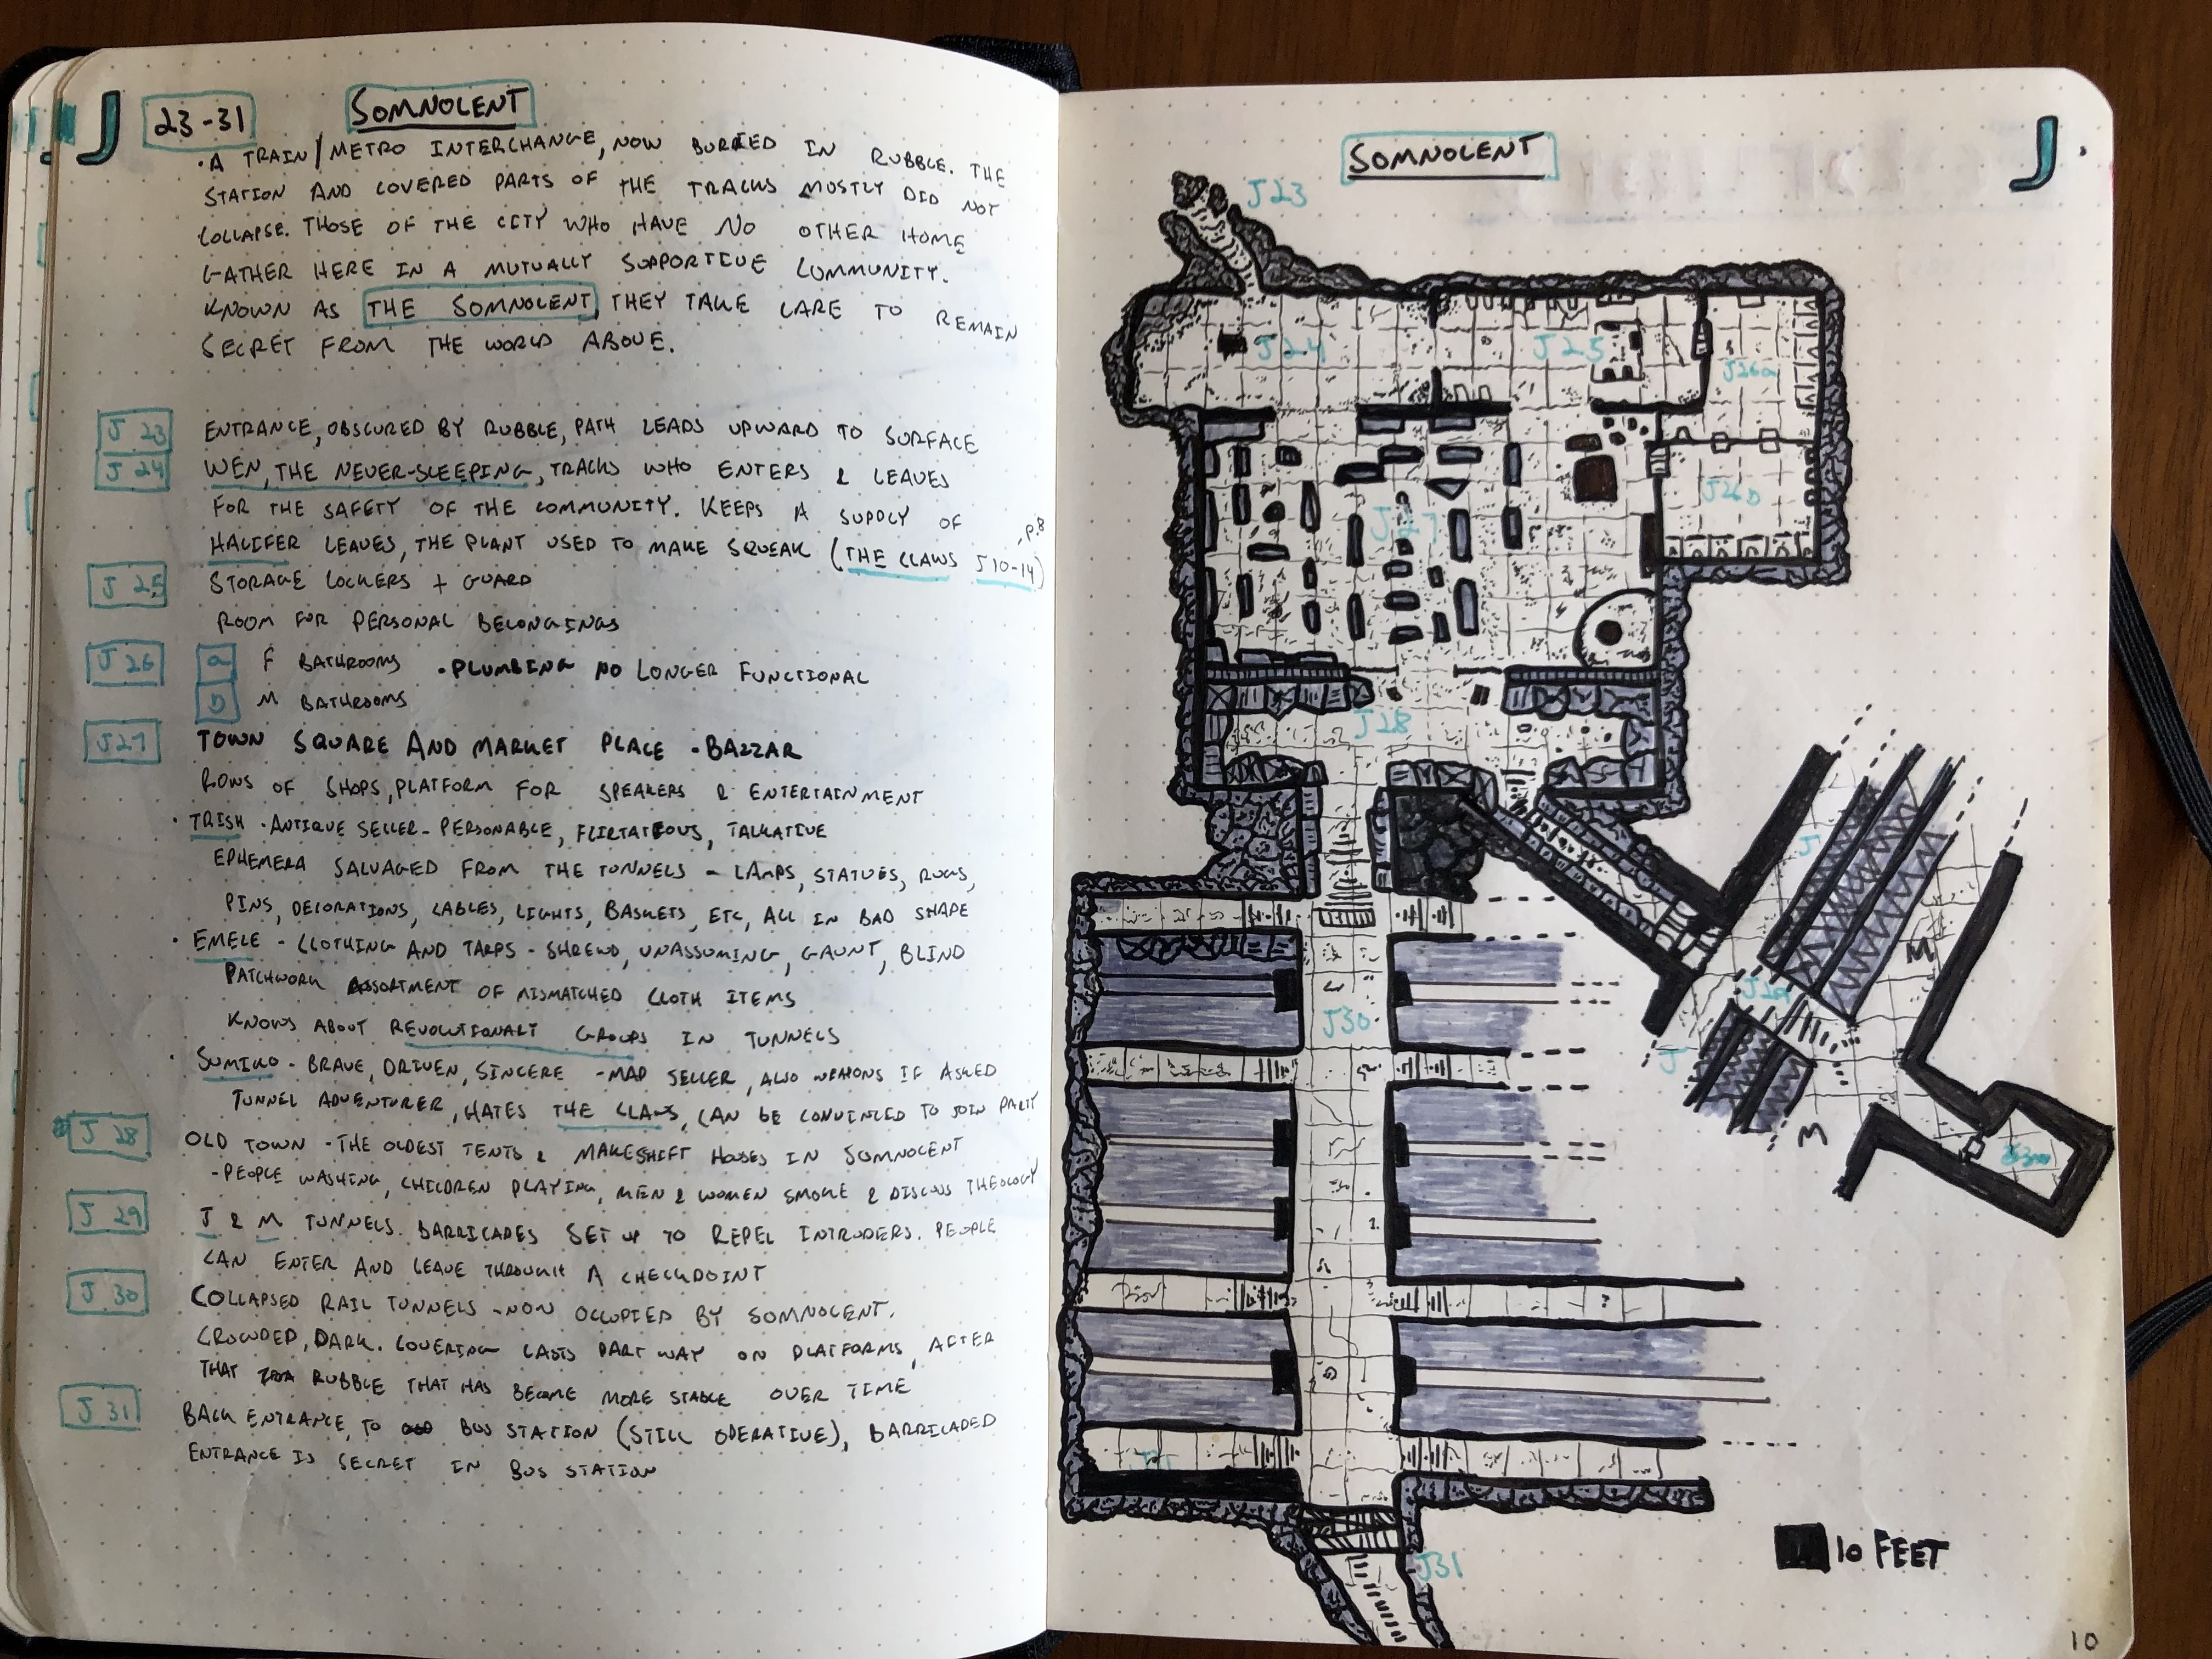 J 23-31 SOMNOLENT
· A TRAIN/METRO INTERCHANGE, NOW BURIED IN RUBBLE. THE
STATION AND COVERED PARTS OF THE TRACKS MOSTLY DID NOT
COLLAPSE. THOSE OF THE CITY WHO HAVE NO OTHER HOME
GATHER HERE IN A MUTUALLY SUPPORTIVE COMMUNITY.
KNOWN AS THE SOMNOLENT, THEY TAKE CARE TO REMAIN
SECRET FROM THE WORLD ABOVE.
J 23 ENTRANCE, OBSCURED BY RUBBLE, PATH LEADS UPWARD TO SURFACE
J 24 WEN, THE NEVER-SLEEPING, TRACKS WHO ENTERS & LEAVES
FOR THE SAFETY OF THE COMMUNITY. KEEPS A SUPPLY OF
HALIFER LEAVES, THE PLANT USED TO MAKE SQUEAK (THE CLAWS J10-14), P.8
J 25 STORAGE LOCKERS + GUARD
ROOM FOR PERSONAL BELONGINGS
J 26 a F BATHROOMS · PLUMBING NO LONGER FUNCTIONAL
b M BATHROOMS
J27 TOWN SQUARE AND MARKET PLACE - BAZZAR
ROWS OF SHOPS, PLATFORM FOR SPEAKERS & ENTERTAINMENT
· TRISH - ANTIQUE SELLER - PERSONABLE, FLIRTATEOUS, TALKATIVE
EPHEMERA SALVAGED FROM THE TUNNELS - LAMPS, STATUES, RUGS,
PINS, DECORATIONS, CABLES, LIGHTS, BASKETS, ETC, ALL IN BAD SHAPE
· EMELE - CLOTHING AND TARPS - SHREWD, UNASSUMING, GAUNT, BLIND
PATCHWORK ASSORTMENT OF MISMATCHED CLOTH ITEMS
KNOWS ABOUT REVOLUTIONARY GROUPS IN TUNNELS
· SUMIKO - BRAVE, DRIVEN, SINCERE - MAP SELLER, ALSO WEAPONS IF ASKED
TUNNEL ADVENTURER, HATES THE CLAWS, CAN BE CONVINCED TO JOIN PARTY
J 28 OLD TOWN - THE OLDEST TENTS & MAKESHIFT HOUSES IN SOMNOCENT
- PEOPLE WASHING, CHILDREN PLAYING, MEN & WOMEN SMOKE & DISCUSS THEOLOGY
J 29 J & M TUNNELS. BARRICADES SET UP TO REPEL INTRUDERS. PEOPLE
CAN ENTER AND LEAVE THROUGH A CHECKPOINT
J 30 COLLAPSED RAIL TUNNELS - NON OCCUPIED BY SOMNOCENT.
CROWDED, DARK. COVERING LASTS PART WAY ON PLATFORMS, AFTER
THAT RUBBLE THAT HAS BECOME MORE STABLE OVER TIME
J 31 BACK ENTRANCE, TO BUS STATION (STILL OPERATIVE), BARRICADED
ENTRANCE IS SECRET IN BUS STATION
SOMNOLENT
J
J23
J24
J25
J26a
J26b
J27
J28
J
M
J29
J
M
J30
J31
10 FEET
10